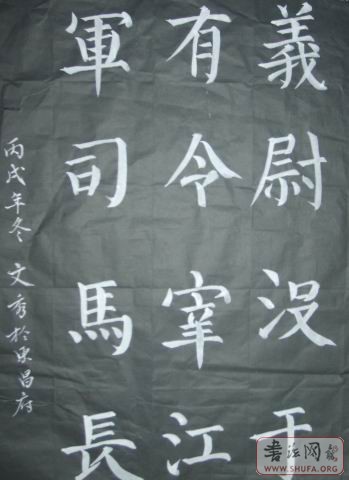 義尉没于
有令宰江
軍司馬長
丙戌年冬 文秀於東昌府
书法网
WWW.SHUFA.ORG